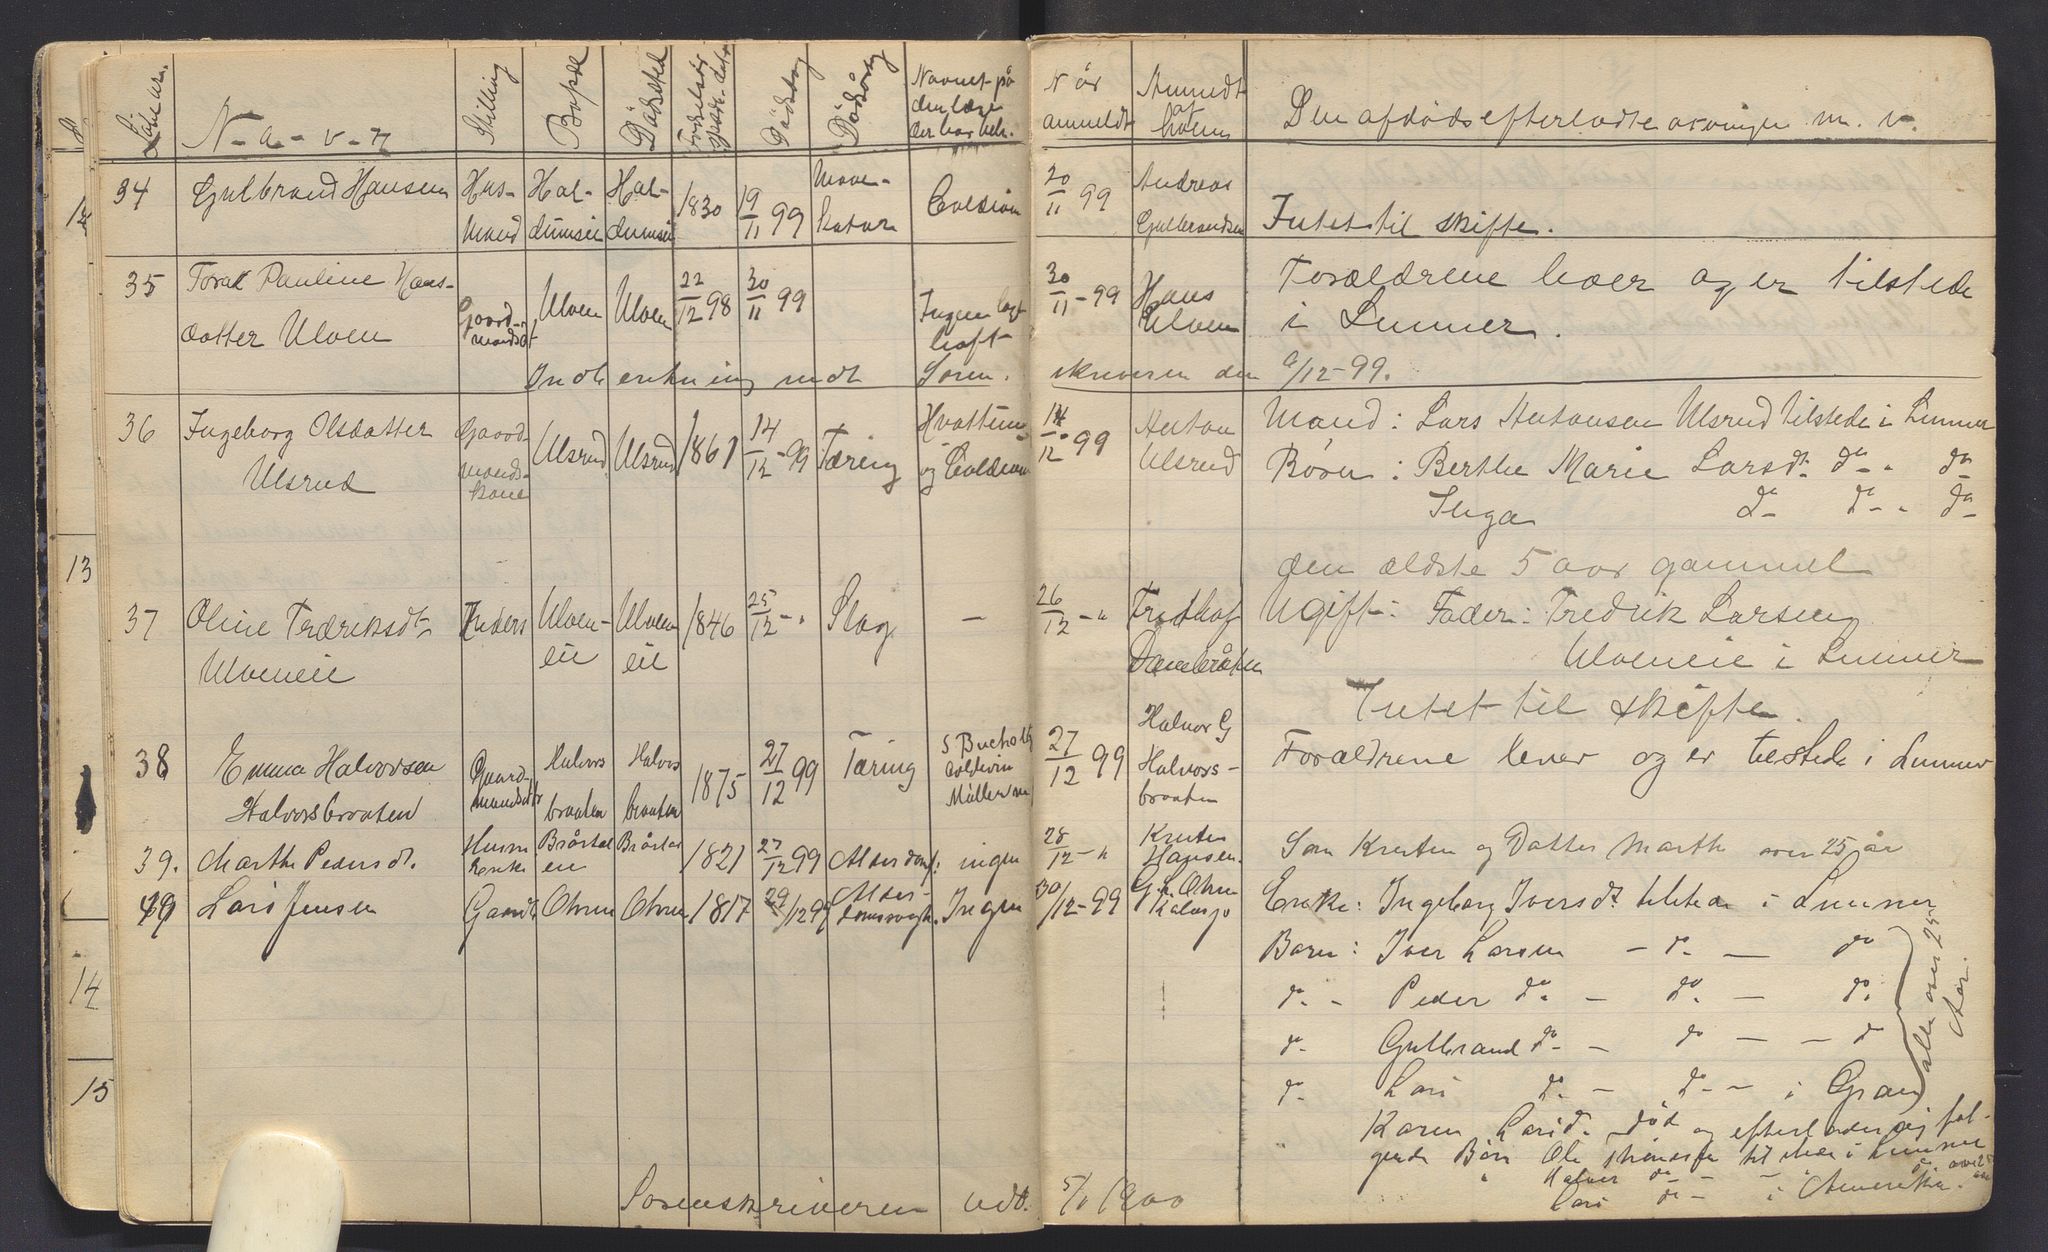 Løbe nr.
N-a-v-n
Stilling
Bopæl
Dødssted
Fødselsår
Dødsdag
Dødsårsag
Navnet på
den læge
der har beh.
Når
anmeldt
Anmeldt
af
hvem
Den afdødes efterladte arvinger m. v.
34
Gulbrand Hansen
Hus-
mand
Hal-
dumsei
Hal-
dumsei
1830
19/11 99
Mave-
katar
Coldevin
20/11 99
Andreas
Gulbrandsen
Intet til skifte.
35
Pauline Hans-
datter Ulven
Gaard-
mandsdt
Ulven
Ulven
22/12 98
30/11 99
Ingen lægehaft
30/11 - 99
Hans
Ulven
Forældrene lever og er tilstede
i Lunner.
Indberetning sendt Soren. skriveren den 9/12-99.
36
Ingeborg Olsdatter
Ulsrud
Gaard
mands-
kone
Ulsrud
Ulsrud
1861
14/12 - 99
Tæring
Hvattum
og Coldevin
14/12 - 99
Anton
Ulsrud
Mand: Lars Antonsen Ulsrud tilstede i Lunner
Børn: Berthe Marie Larsdt. do - " do
Inga do do - " do
den ældste 5 aar gammel
37
Oline Fredriksdt
Ulveneie
Inders
Ulven-
eie
Ulven
eie
1846
25/12 - "
Slag
—
26/12 - "
Fridthof
Dæmbråten
Ugift: Fader: Fredrik Larsen
Ulveneie i Lunner
Intet til skifte.
38
Emma Halvorsen
Halvorsbraaten
Gaard-
mandsdtr
Halvors
braaten
Halvors
braaten
1875
27/12 99
Tæring
S Bucholtz
Coldevin
Müller
27/12 99
Halvor G
Halvors-
braaten
Forældrene lever og er tilstede i Lunner
39.
Marthe Pedersdt.
Husm
Enke
1821
27/12 99
ingen
28/12 - "
Hansen.
Søn Kresten og Datter Marthe over 25 år
Lars Jensen
Gaardb
Ohren
Ohren
1817
29/12 99
Alder-
domssvagh.
Ingen
30/12-99
Enke: Ingeborg Iversdt. tilstede i Lunner
Barn: Iver Larsen - do - do
do - Peder do - do - do
do - Gulbrand do - do - - do
do - Lars do - do - - i Gran
alle over 25 Aar.
Karen Larsd. død og efterlader sig føl-
gende Børn Ole tilstede i Lunner
" Halvor do - -
Lars do - - i Amerika.
Sorenskriveren udt. 5/1 1900
13
14
15